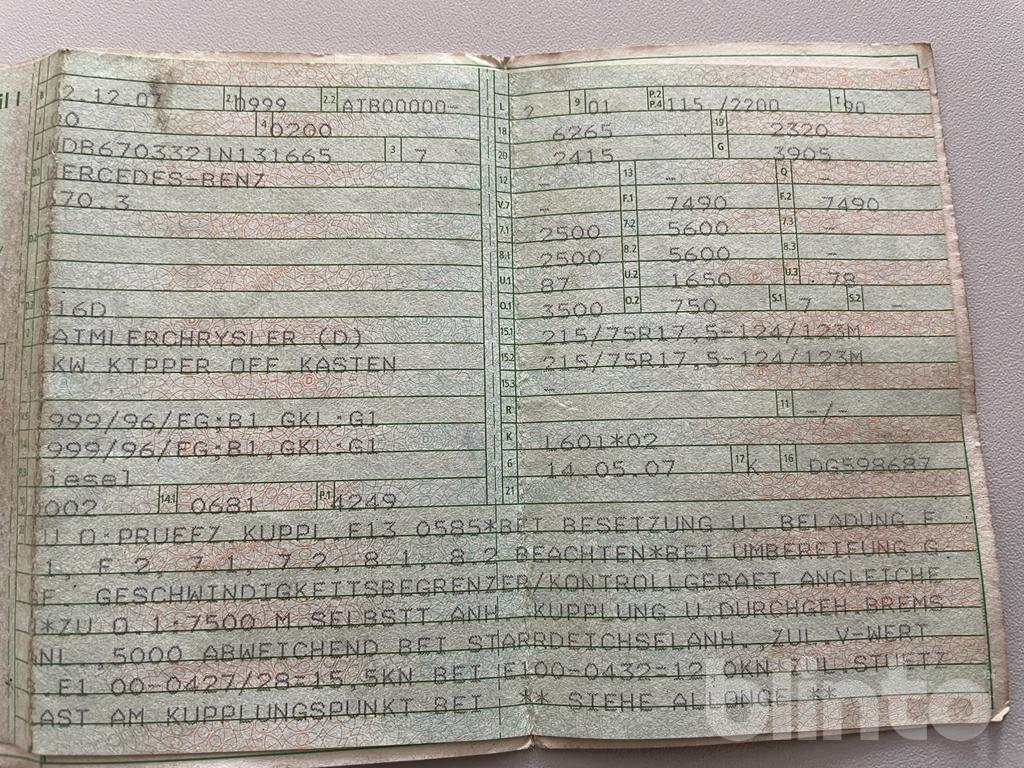 il I
2.12.07 2.1 0999 2.2 ATB00000-
4 0200
WDB6703321N131665 3 7
MERCEDES-BENZ
670.3
D.2
816D
D.3
DAIMLERCHRYSLER (D)
KW KIPPER OFF.KASTEN
999/96/EG;B1,GKL:G1
999/96/EG;B1,GKL:G1
iesel
002 14.1 0681 P.1 4249
L 2 9 01 P.2 P.4 115 /2200 T 90
18 6265 19 2320
20 2415 G 3905
12 - 13 - Q -
V.7 - F.1 7490 F.2 7490
7.1 2500 7.2 5600 7.3 -
8.1 2500 8.2 5600 8.3 -
U.1 87 U.2 1650 U.3 78
O.1 3500 O.2 750 S.1 7 S.2 -
15.1 215/75R17,5-124/123M
15.2 215/75R17,5-124/123M
15.3 -
R 11 -/-
K L601*02
6 14.05.07 17 K 16 DG598687
21
U O:PRUEFZ KUPPL.E13 0585*BEI BESETZUNG U. BELADUNG F.
1, F.2, 7.1, 7.2, 8.1, 8.2 BEACHTEN*BEI UMBEREIFUNG G.
GF. GESCHWINDIGKEITSBEGRENZER/KONTROLLGERAET ANGLEICHE
N*ZU O.1:7500 M.SELBSTT.ANH.KUPPLUNG U.DURCHGEH.BREMS
ANL.,5000 ABWEICHEND BEI STARRDEICHSELANH.,ZUL.V-WERT
E1 00-0427/28=15,5KN BEI E100-0432-12,0KN ZUL.STUETZ
LAST AM KUPPLUNGSPUNKT BEI ** SIEHE ALLONGE **
blinto